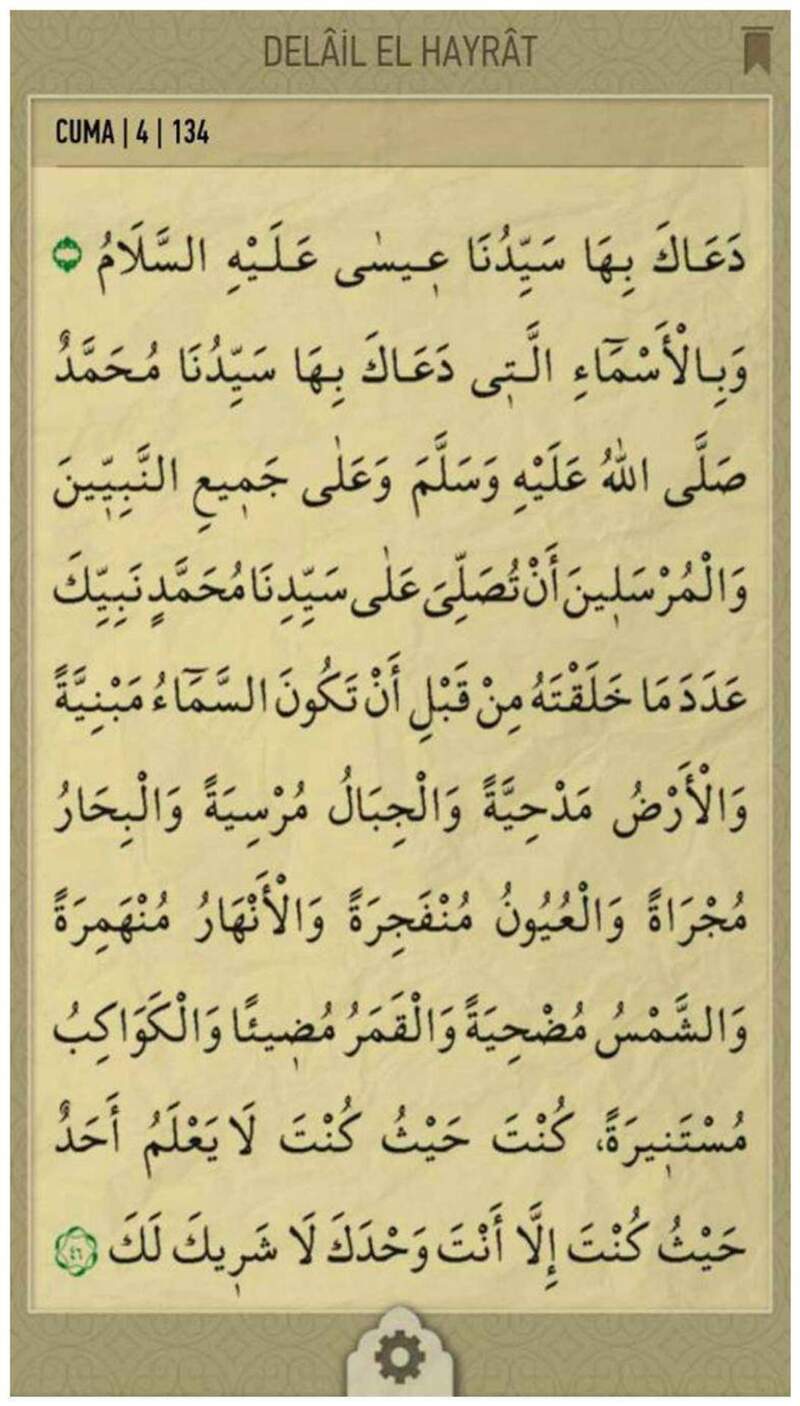 DELÂİL EL HAYRÂT
CUMA | 4 | 134
دَعَاكَ بِهَا سَيِّدُنَا عِيسٰى عَلَيْهِ السَّلَامُ
وَبِالْأَسْمَٓاءِ الَّتِى دَعَاكَ بِهَا سَيِّدُنَا مُحَمَّدٌ
صَلَّى اللهُ عَلَيْهِ وَسَلَّمَ وَعَلٰى جَمِيعِ النَّبِيِّينَ
وَالْمُرْسَلِينَ أَنْ تُصَلِّىَ عَلٰى سَيِّدِنَا مُحَمَّدٍ نَبِيِّكَ
عَدَدَ مَا خَلَقْتَهُ مِنْ قَبْلِ أَنْ تَكُونَ السَّمَٓاءُ مَبْنِيَّةً
وَالْأَرْضُ مَدْحِيَّةً وَالْجِبَالُ مُرْسِيَةً وَالْبِحَارُ
مُجْرَاةً وَالْعُيُونُ مُنْفَجِرَةً وَالْأَنْهَارُ مُنْهَمِرَةً
وَالشَّمْسُ مُضْحِيَةً وَالْقَمَرُ مُضِيئًا وَالْكَوَاكِبُ
مُسْتَنِيرَةً، كُنْتَ حَيْثُ كُنْتَ لَا يَعْلَمُ أَحَدٌ
حَيْثُ كُنْتَ إِلَّا أَنْتَ وَحْدَكَ لَا شَرِيكَ لَكَ ٤٦